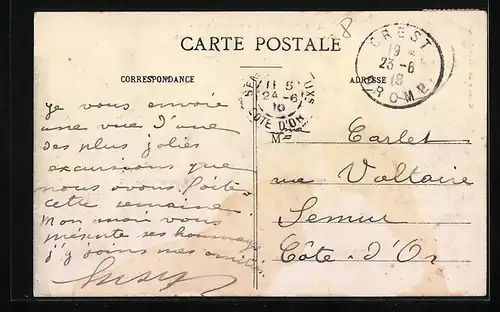 8
CARTE POSTALE
CORRESPONDANCE
ADRESSE
CREST
19
23-6
10
DROME
SEMUR
11 5
24-6
10
COTE D'OR
Je vous envoie
une vue d'une
des plus jolies
excursions que
nous avons faite
cette semaine.
Mon mari vous
présente ses hommages
j'y joins mes amitiés
Mme Carlet
rue Voltaire
Semur
Côte-d'Or